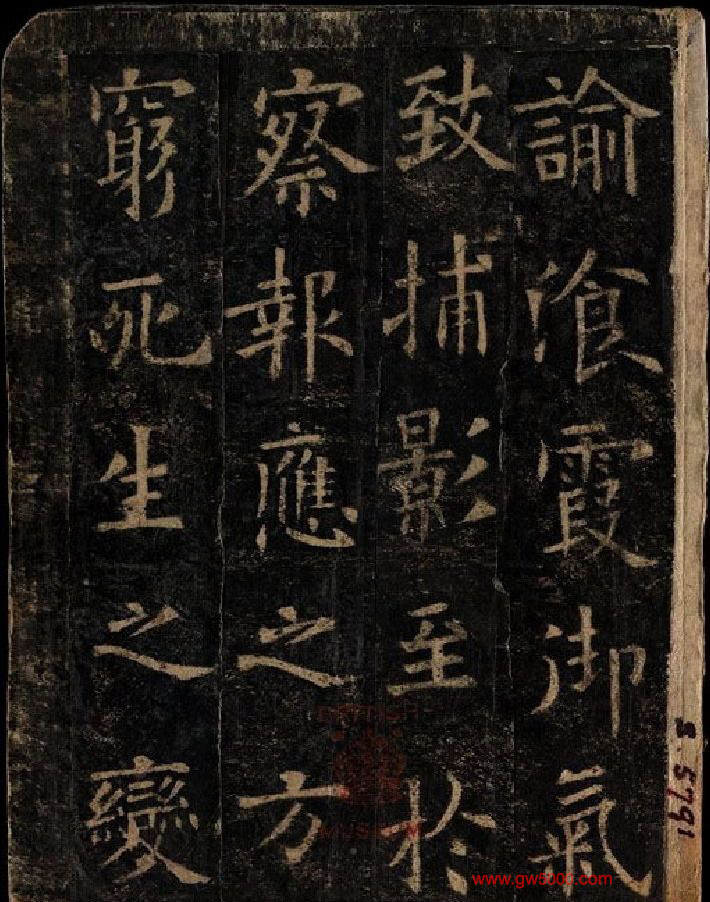 諭湌霞御氣
致捕影至於
察報應之方
窮死生之變
S.5791
BRITISH
MUSEUM
www.gw5000.com